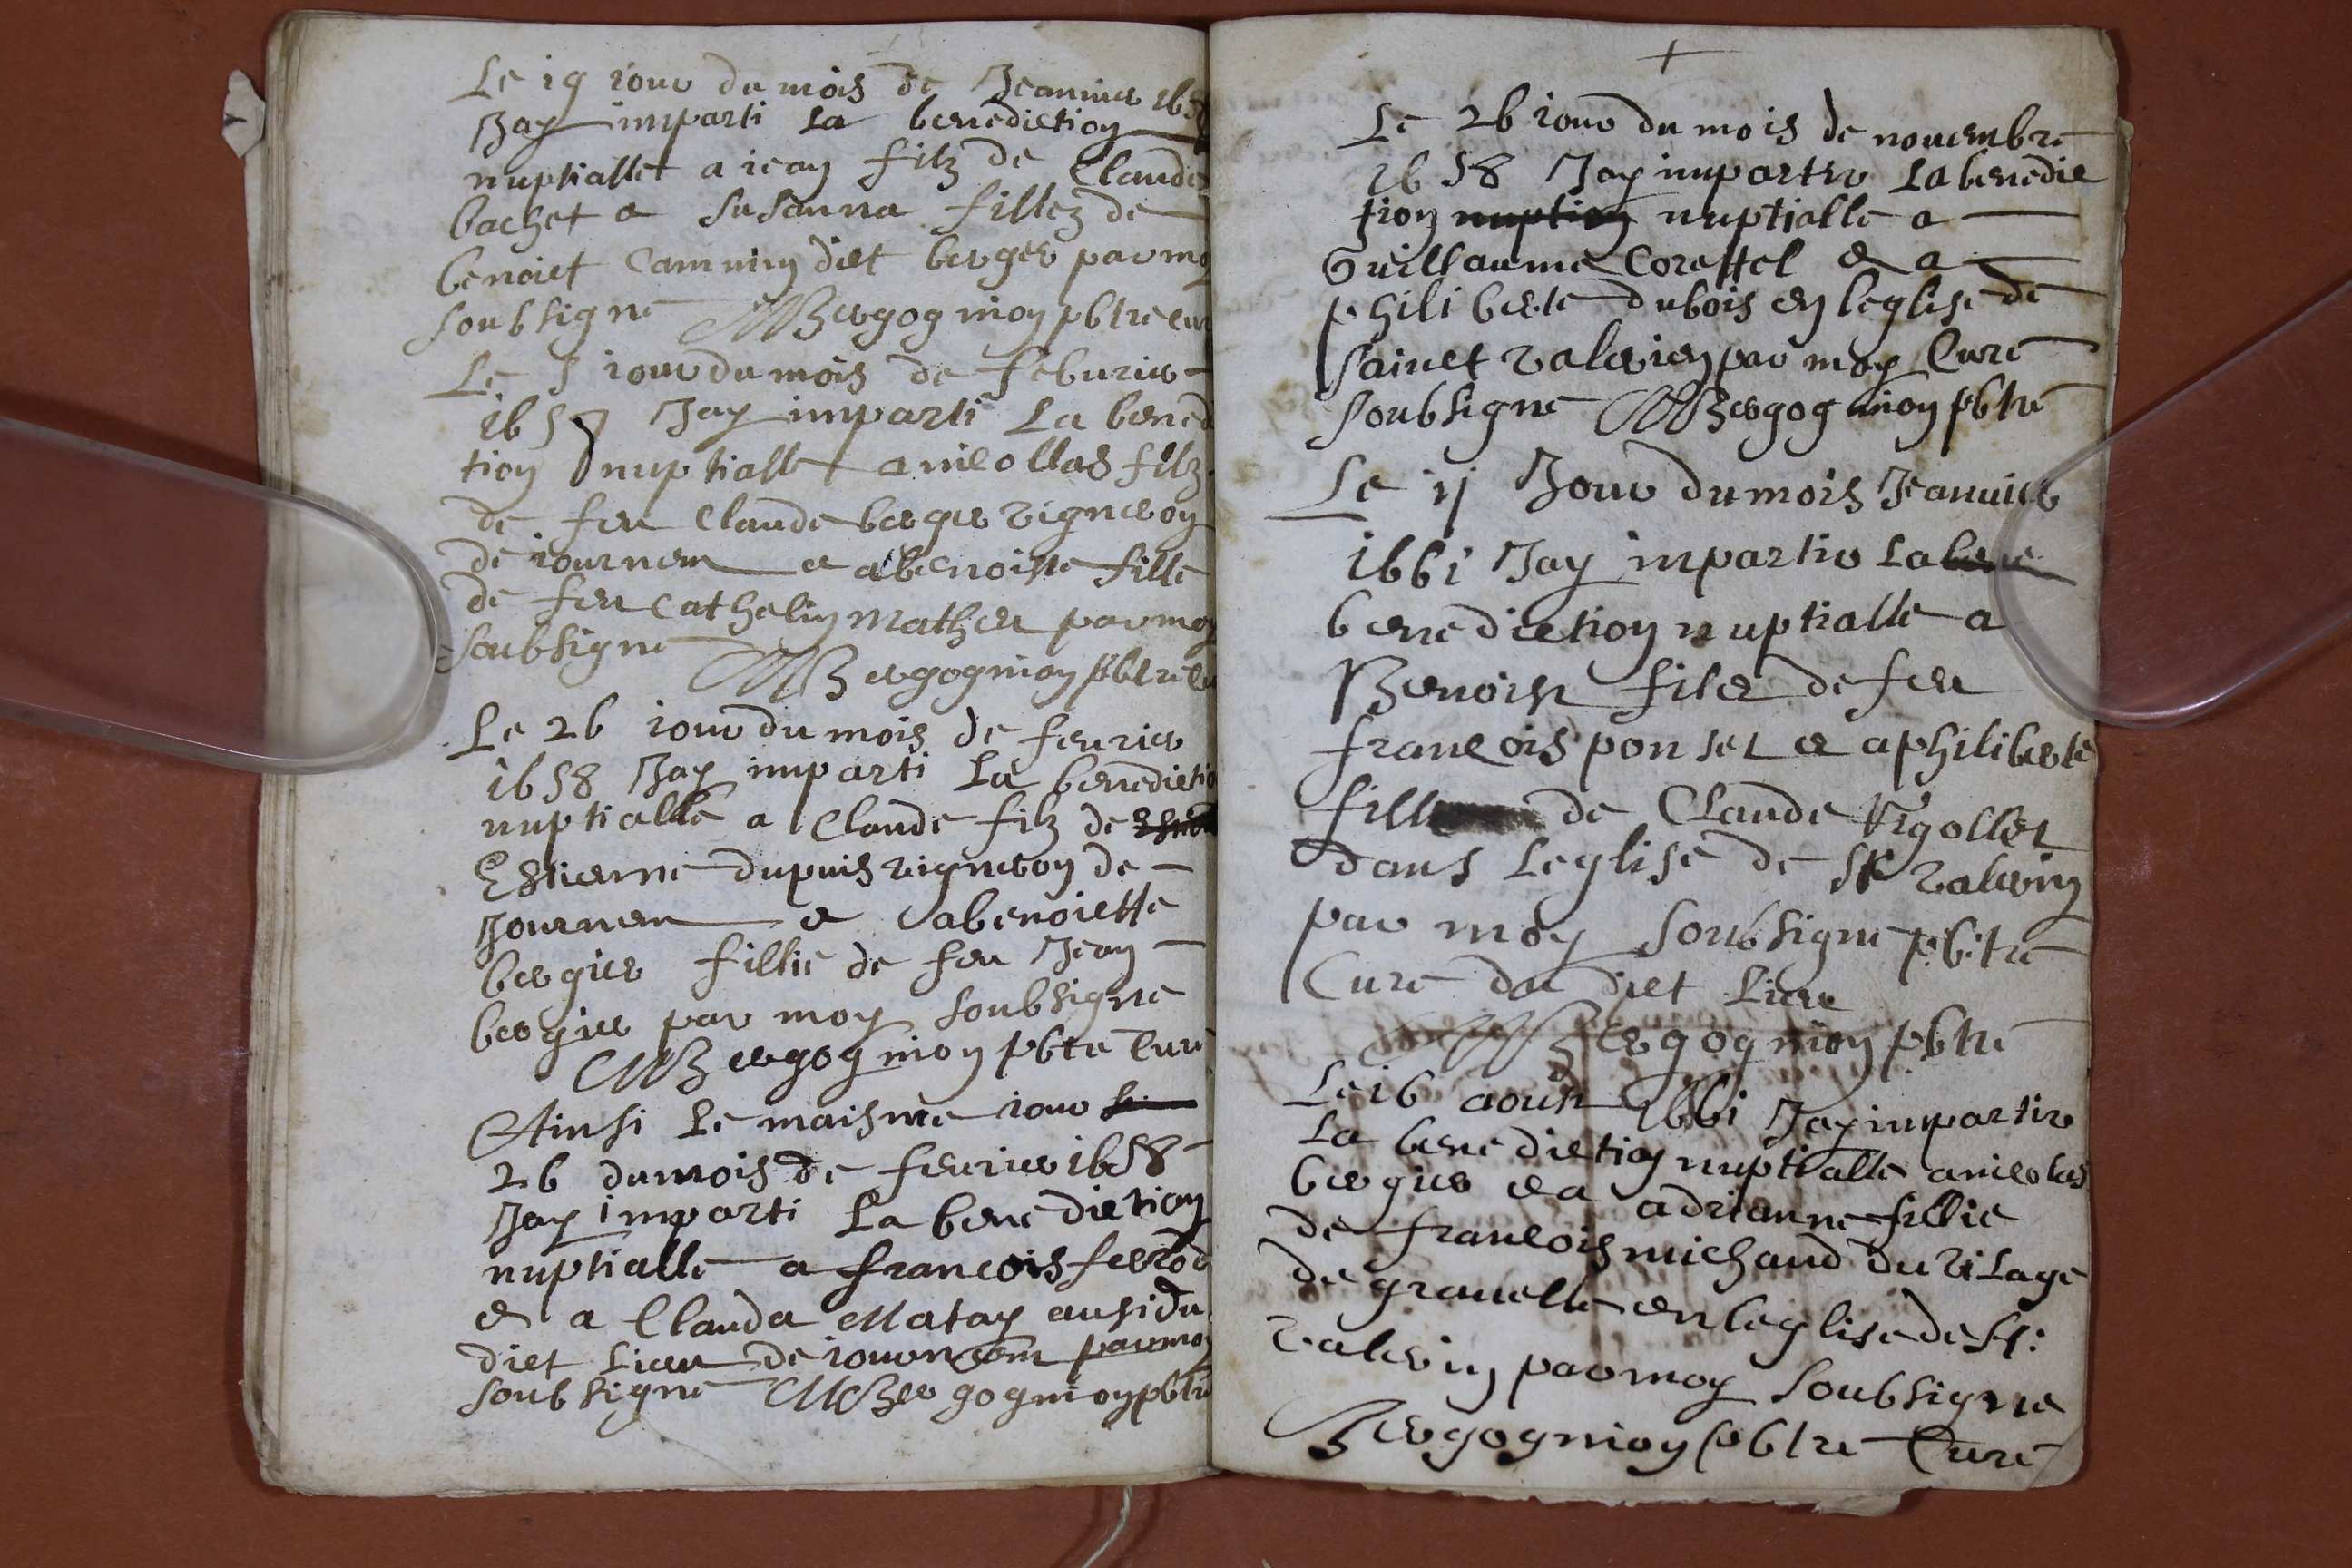 Le 19 iour du mois de Jeanuier 165
Jay imparti La benediction
nuptiallet a iean filz de Claude
bachet a Susanna fillez de
benoict Cammin dict berger par moy
soubsigne MBergognion pbtre cur
Le 5 iour du mois de feburier
1657 Jay imparti La bened
tion nuptialle a nicollas filz
de feu Claude berger vigneron
de iournem et a benoiste fille
de feu Cathelin Matheu par moy
soubsigne
MBergognion pbtre Cu
Le 26 iour du mois de feurier
1658 Jay imparti La benedictio
nuptialle a Claude filz de
Estienne dupuis vigneron de
Journem et a benoictte
bergier fillie de feu Jean
bergier par moy soubsigne
MBergognion pbtre Cure
Ainsi Le maisme iour
26 du mois de feurier 1658
Jay imparti La benediction
nuptialle a francois ferrod
et a Clauda Matay ausi du
dict Lieu de iournem par moy
soubsigne MBergognion pbtre
+
Le 26 iour du mois de nouembre
1658 Jay impartir La benedic
tion nuption nuptialle a
Guillaume Corettel et a
philiberte dubois en leglise de
sainct valerien par moy Cure
soubsigne MBergognion pbtre
Le ij Jour du mois Jeanuier
1661 Jay impartir La bene
benediction nuptialle a
Benoist filz de feu
francois ponset et a philiberte
fille de Claude Rigollet
dans Leglise de St valerin
par moy soubsigne pbtre
Cure du dict Lieu
MBergognion pbtre
Le 16 aoust 1661 Jay impartir
La benediction nuptialle a nicolas
bergier et a adrianne fillie
de francois michaud du vilage
de grauelle en leglise de St:
valerin par moy soubsigne
Bergognion pbtre Cure